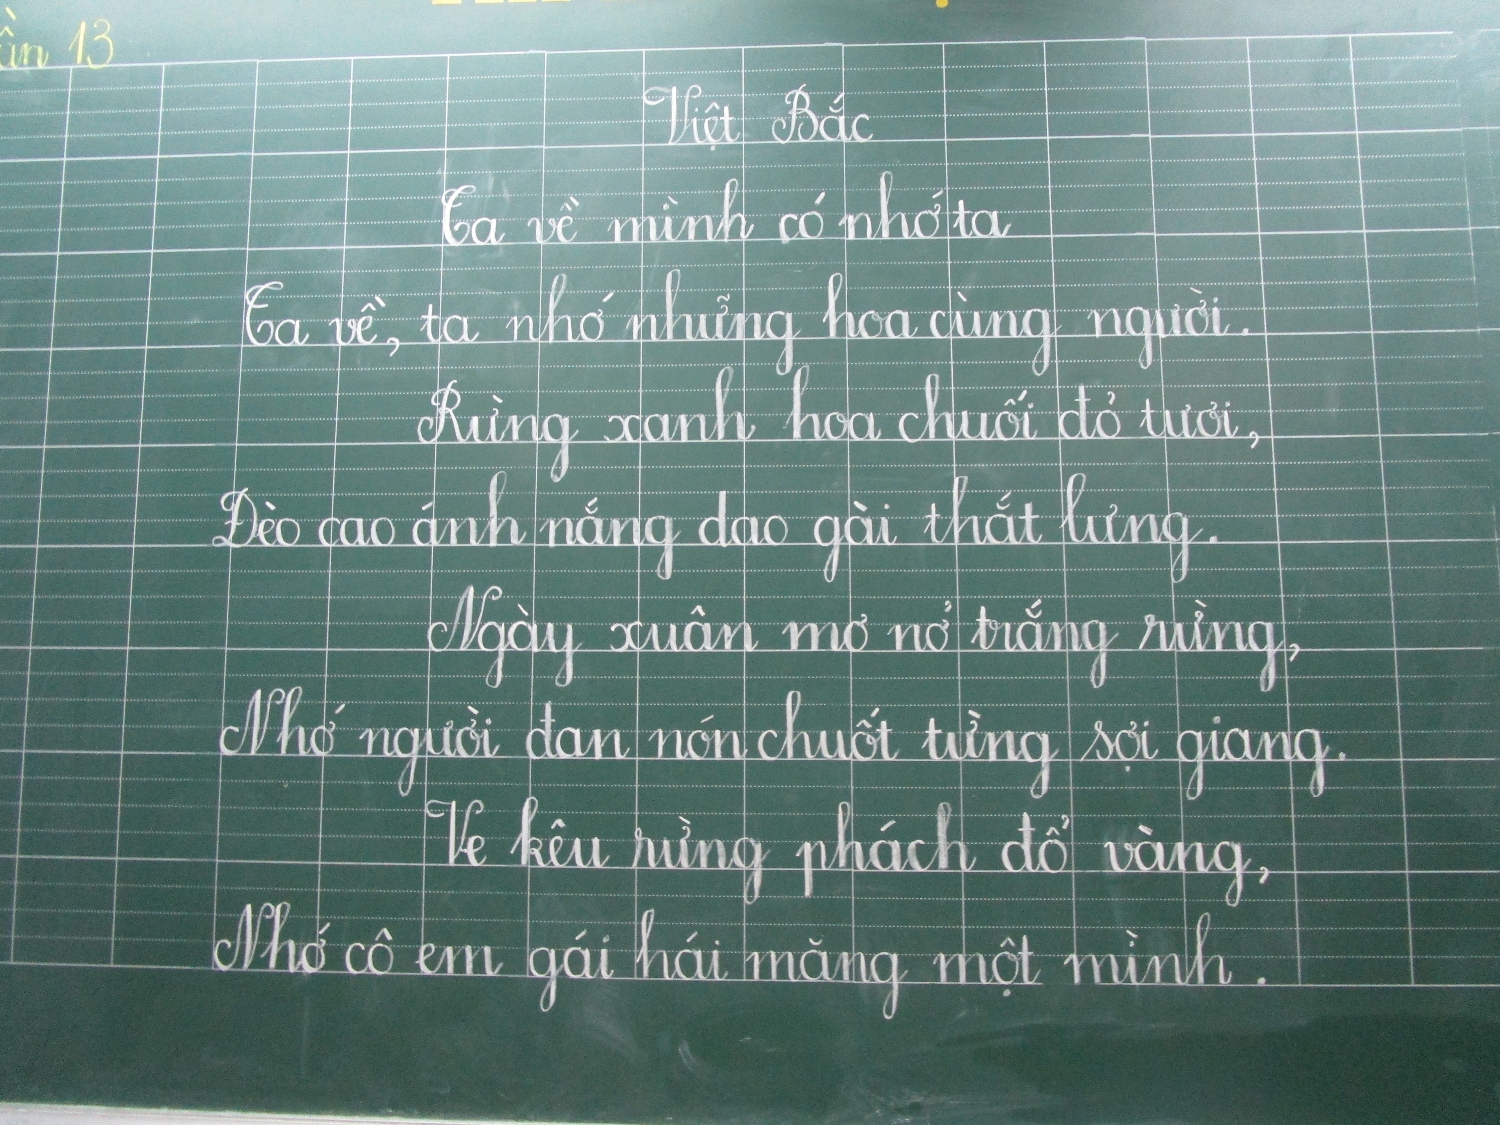 13
Việt Bắc
Ta về mình có nhớ ta
Ta về, ta nhớ những hoa cùng người.
Rừng xanh hoa chuối đỏ tươi,
Đèo cao ánh nắng dao gài thắt lưng.
Ngày xuân mơ nở trắng rừng,
Nhớ người đan nón chuốt từng sợi giang.
Ve kêu rừng phách đổ vàng,
Nhớ cô em gái hái măng một mình.